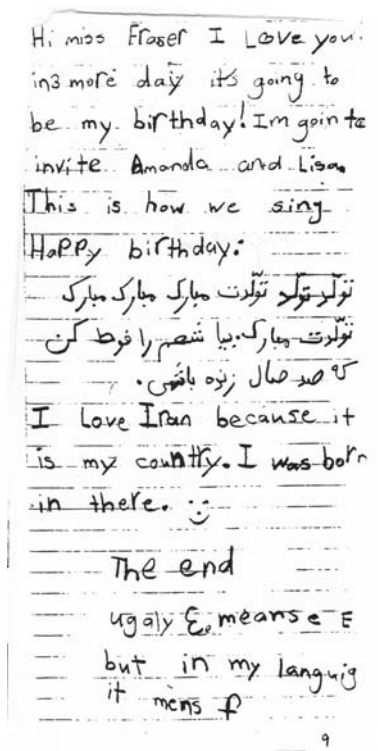 Hi miss Fraser I Love you.
in3 more day it's going to
be my birthday! Im goin to
invite Amanda and Lisa.
This is how we sing
HaPPy birthday:
تولّد تولّد تولّدت مبارک مبارک مبارک
تولّدت مبارک. بیا شعم را فوط کن
که صد صال زنده باشی.
I Love Iran because it
is my country. I was born
in there.
The end
ugaly ع means e E
but in my languig
it mens f
9